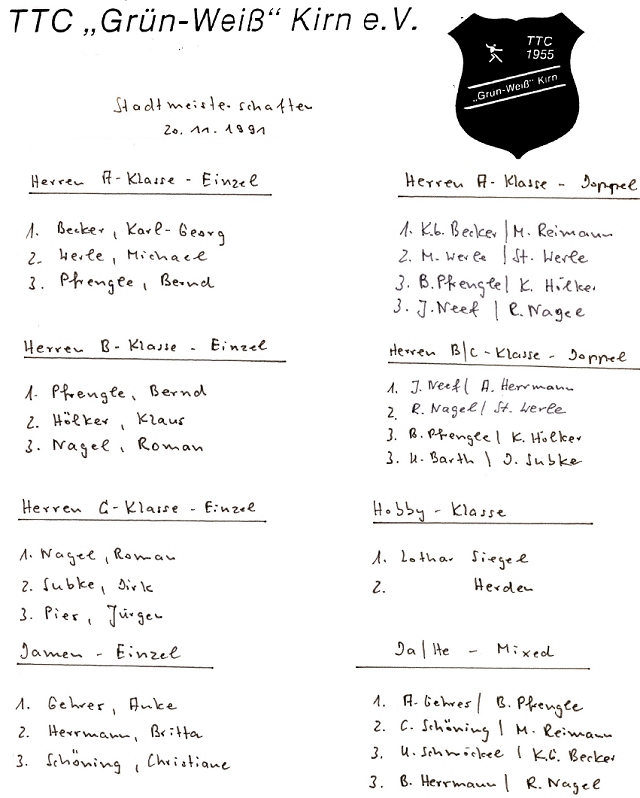 TTC „Grün-Weiß“ Kirn e.V.
TTC
1955
„Grün-Weiß“ Kirn
Stadtmeisterschaften
20.11.1991
Herren A-Klasse - Einzel
1. Becker, Karl-Georg
2. Werle, Michael
3. Pfrengle, Bernd
Herren A-Klasse - Doppel
1. K.G. Becker | M. Reimann
2. M. Werle | St. Werle
3. B. Pfrengle | K. Hölker
3. J. Neef | R. Nagel
Herren B-Klasse - Einzel
1. Pfrengle, Bernd
2. Hölker, Klaus
3. Nagel, Roman
Herren B|C-Klasse - Doppel
1. J. Neef | A. Herrmann
2. R. Nagel | St. Werle
3. B. Pfrengle | K. Hölker
3. U. Barth | D. Subke
Herren C-Klasse - Einzel
1. Nagel, Roman
2. Subke, Dirk
3. Pies, Jürgen
Hobby - Klasse
1. Lothar Siegel
2. Herden
Damen - Einzel
1. Gehres, Anke
2. Herrmann, Britta
3. Schöning, Christiane
Da|He - Mixed
1. A. Gehres | B. Pfrengle
2. C. Schöning | M. Reimann
3. U. Schmöckel | K.G. Becker
3. B. Herrmann | R. Nagel